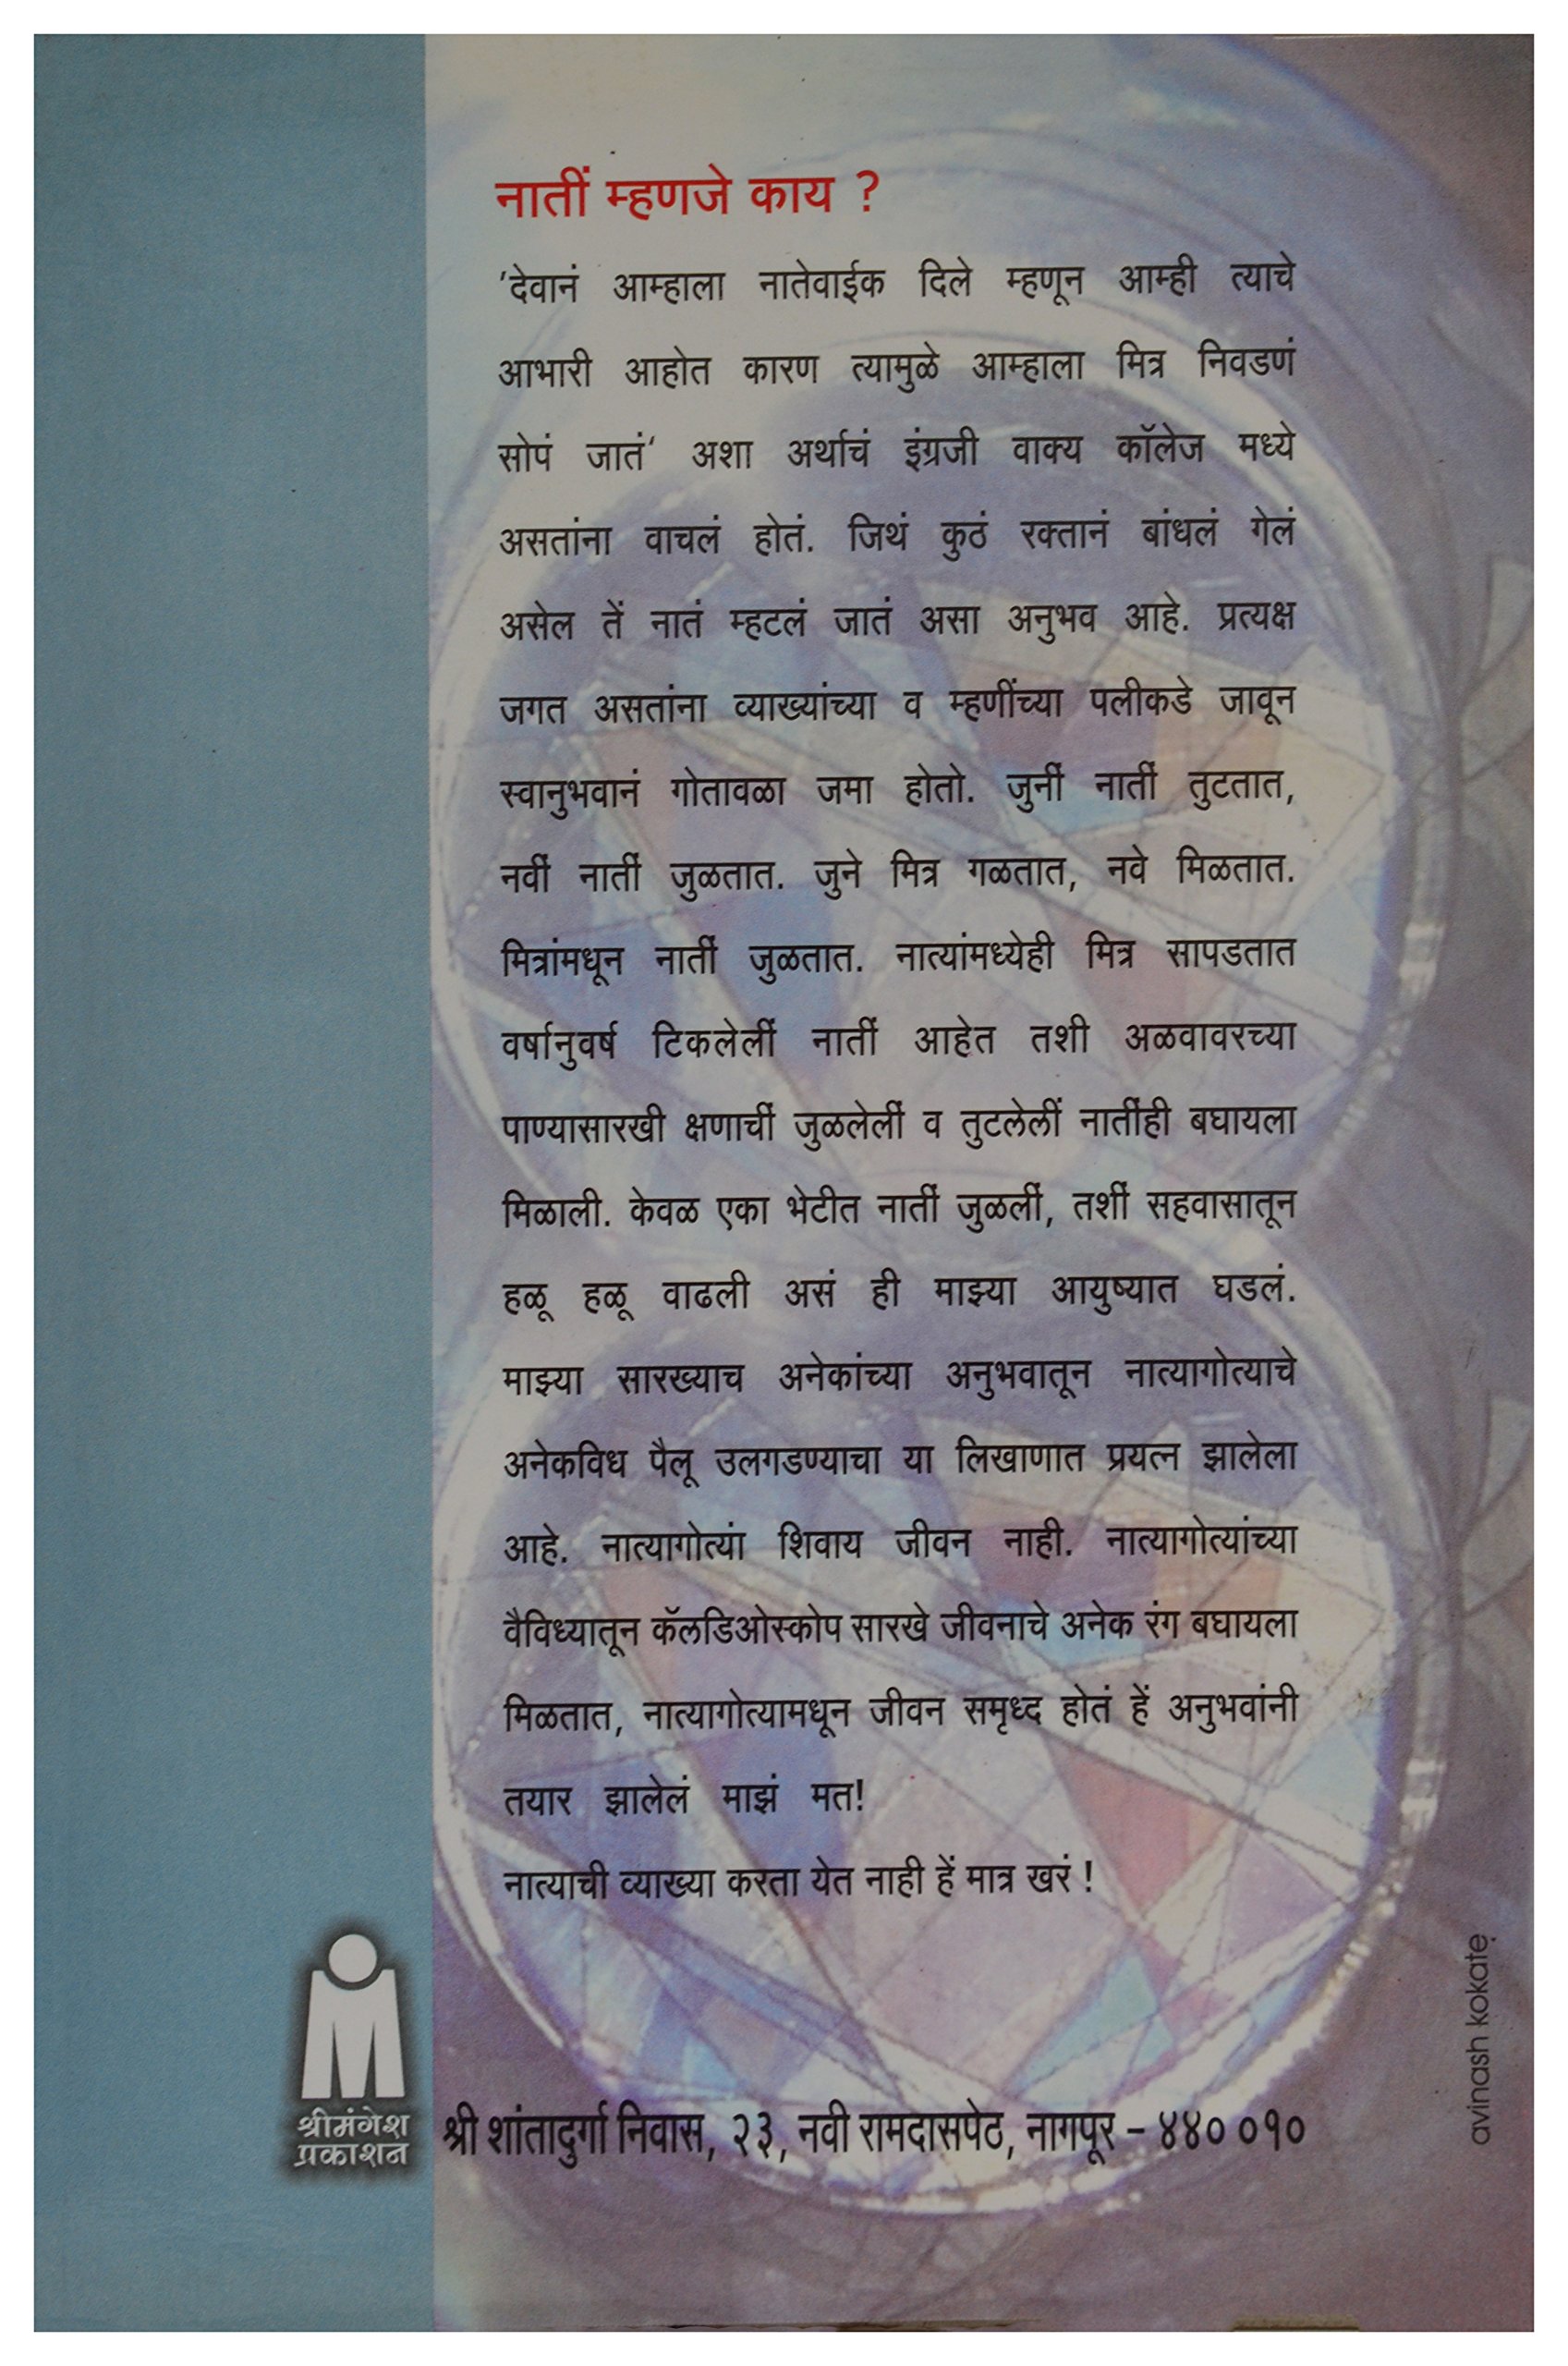 नातीं म्हणजे काय ?
'देवानं आम्हाला नातेवाईक दिले म्हणून आम्ही त्याचे
आभारी आहोत कारण त्यामुळे आम्हाला मित्र निवडणं
सोपं जातं‘ अशा अर्थाचं इंग्रजी वाक्य कॉलेज मध्ये
असतांना वाचलं होतं. जिथं कुठं रक्तानं बांधलं गेलं
असेल तें नातं म्हटलं जातं असा अनुभव आहे. प्रत्यक्ष
जगत असतांना व्याख्यांच्या व म्हणींच्या पलीकडे जावून
स्वानुभवानं गोतावळा जमा होतो. जुनीं नातीं तुटतात,
नवीं नातीं जुळतात. जुने मित्र गळतात, नवे मिळतात.
मित्रांमधून नातीं जुळतात. नात्यांमध्येही मित्र सापडतात
वर्षानुवर्ष टिकलेलीं नातीं आहेत तशी अळवावरच्या
पाण्यासारखी क्षणाचीं जुळलेलीं व तुटलेलीं नातींही बघायला
मिळाली. केवळ एका भेटीत नातीं जुळलीं, तशीं सहवासातून
हळू हळू वाढली असं ही माझ्या आयुष्यात घडलं.
माझ्या सारख्याच अनेकांच्या अनुभवातून नात्यागोत्याचे
अनेकविध पैलू उलगडण्याचा या लिखाणात प्रयत्न झालेला
आहे. नात्यागोत्यां शिवाय जीवन नाही. नात्यागोत्यांच्या
वैविध्यातून कॅलडिओस्कोप सारखे जीवनाचे अनेक रंग बघायला
मिळतात, नात्यागोत्यामधून जीवन समृध्द होतं हें अनुभवांनी
तयार झालेलं माझं मत!
नात्याची व्याख्या करता येत नाही हें मात्र खरं !
श्रीमंगेश
प्रकाशन
श्री शांतादुर्गा निवास, २३, नवी रामदासपेठ, नागपूर – ४४० ०१०
avinash kokate